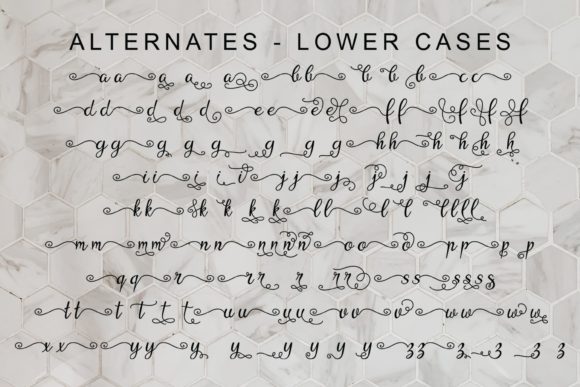 ALTERNATES - LOWER CASES
aa a a a bb b b b cc
dd d d d ee e e ff f f f
gg g g g g g hh h h h h
ii i i i jj j j j j j
kk k k k k ll l l llll
mm mm nn nnññ oo o pp p p
qq r rr r rr ss ssss
tt t t t t uu u vv v ww w w
xx yy y y y y y y zz z z z z